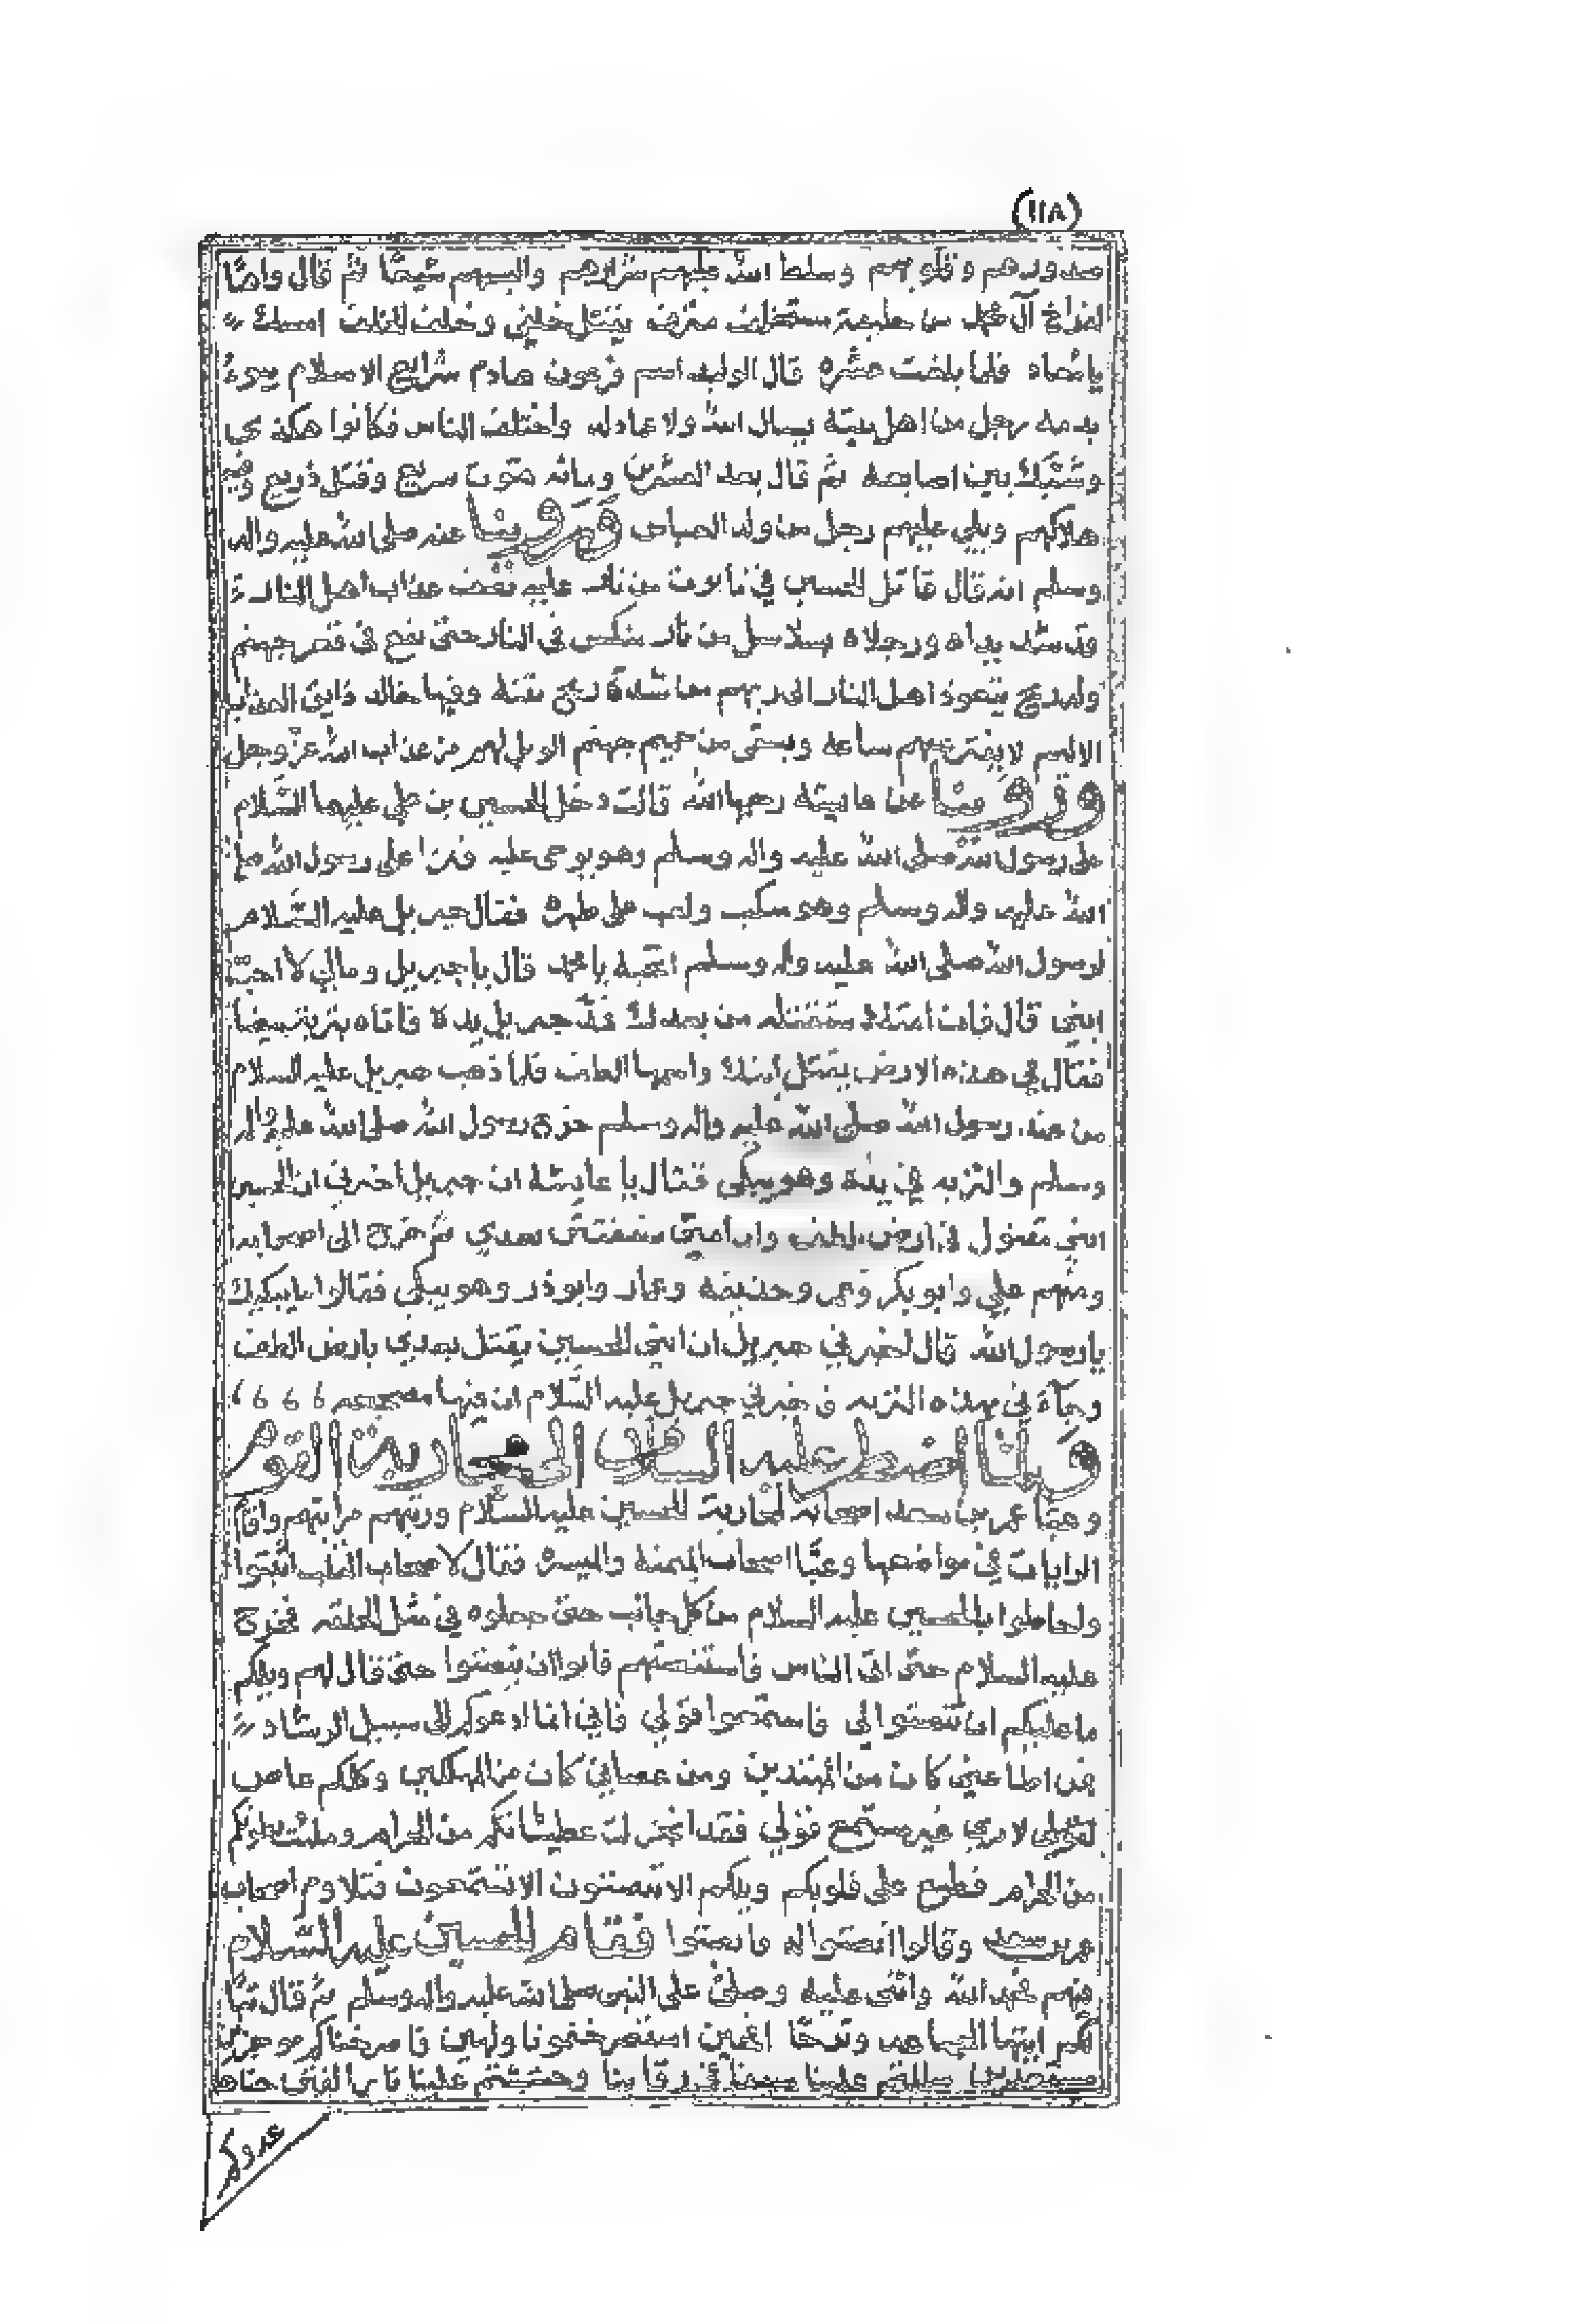 (١١٨)
صدورهم وقلوبهم وسلط الله عليهم شرارهم والبسهم شيعا ثم قال واها
لفراخ آل محمد من خليفة مستخلف مترف يقتل خلفي وخلف الخلف امسك
يا معاذ فلما بلغت عشرة قال الوليد اسم فرعون هادم شرايع الاسلام يبوء
بدمه رجل من اهل بيته يسل الله ولا غمادله واختلف الناس فكانوا هكذى
وشبك بين اصابعه ثم قال بعد العشرين ومائة موت سريع وقتل ذريع وفيه
هلاكهم ويلي عليهم رجل من ولد العباس وروينا عنه صلى الله عليه واله
وسلم انه قال قاتل الحسين في تابوت من نار عليه نصف عذاب اهل النار
وقد شد يداه ورجلاه بسلاسل من نار منكس في النار حتى يقع في قعر جهنم
وله ريح يتعوذ اهل النار الى ربهم من شدة ريح نتنه وفيها خالد ذايق العذاب
الاليم لا يفتر عنهم ساعه ويسقى من حميم جهنم الويل لهم من عذاب الله عز وجل
وروينا عن عايشة رحمها الله قالت دخل الحسين بن علي عليهما السلام
على رسول الله صلى الله عليه واله وسلم وهو يوحى عليه فنزا على رسول الله صلى
الله عليه واله وسلم وهو منكب ولعب على ظهره فقال جبريل عليه السلام
لرسول الله صلى الله عليه واله وسلم اتحبه يا محمد قال يا جبريل ومالي لا احب
ابني قال فان امتك ستقتله من بعدك فمد جبريل يده فاتاه بتربة بيضا
فقال في هذه الارض يقتل ابنك واسمها الطف فلما ذهب جبريل عليه السلام
من عند رسول الله صلى الله عليه واله وسلم خرج رسول الله صلى الله عليه واله
وسلم والتربه في يده وهو يبكي فقال يا عايشة ان جبريل اخبرني ان الحسين
ابني مقتول في ارض الطف وان امتي ستفتتن بعدي ثم خرج الى اصحابه
ومنهم علي وابو بكر وعمر وحذيفة وعمار وابو ذر وهو يبكي فقالوا ما يبكيك
يا رسول الله قال اخبرني جبريل ان ابني الحسين يقتل بعدي بارض الطف
وجاءني بهذه التربه فاخبرني جبريل عليه السلام ان فيها مضجعه
ولما اضطر عليه السلام الى محاربة القوم
وعبا عمر بن سعد اصحابه لمحاربة الحسين عليه السلام ورتبهم مراتبهم واقام
الرايات في مواضعها وعبا اصحاب الميمنة والميسرة فقال لاصحاب القلب اثبتوا
واحاطوا بالحسين عليه السلام من كل جانب حتى جعلوه في مثل الحلقه فخرج
عليه السلام حتى اتى الناس فاستنصتهم فابوا ان ينصتوا حتى قال لهم ويلكم
ما عليكم ان تنصتوا الي فاستمعوا قولي فاني انما ادعوكم الى سبيل الرشاد
فمن اطاعني كان من المهتدين ومن عصاني كان من المهلكين وكلكم عاص
لامري غير مستمع قولي فقد انخزلت عطياتكم من الحرام وملئت بطونكم
من الحرام فطبع على قلوبكم ويلكم الا تنصتون الا تسمعون فتلاوم اصحاب
عمر بن سعد وقالوا انصتوا له فانصتوا فقام الحسين عليه السلام
فيهم فحمد الله واثنى عليه وصلى على النبي صلى الله عليه واله وسلم ثم قال تبا
لكم ايتها الجماعه وترحا احين استصرختمونا ولهين فاصرخناكم موجزين
مستعدين سللتم علينا سيفا في رقابنا وحششتم علينا نار الفتن جناها
عدوكم